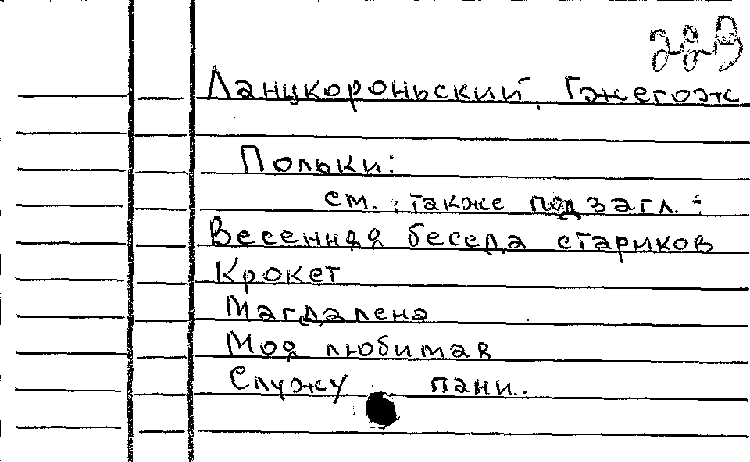 228
Ланцкороньский, Гжегож
Польки:
см. также под загл.:
Весенняя беседа стариков
Крокет
Магдалена
Моя любимая
Служу пани.